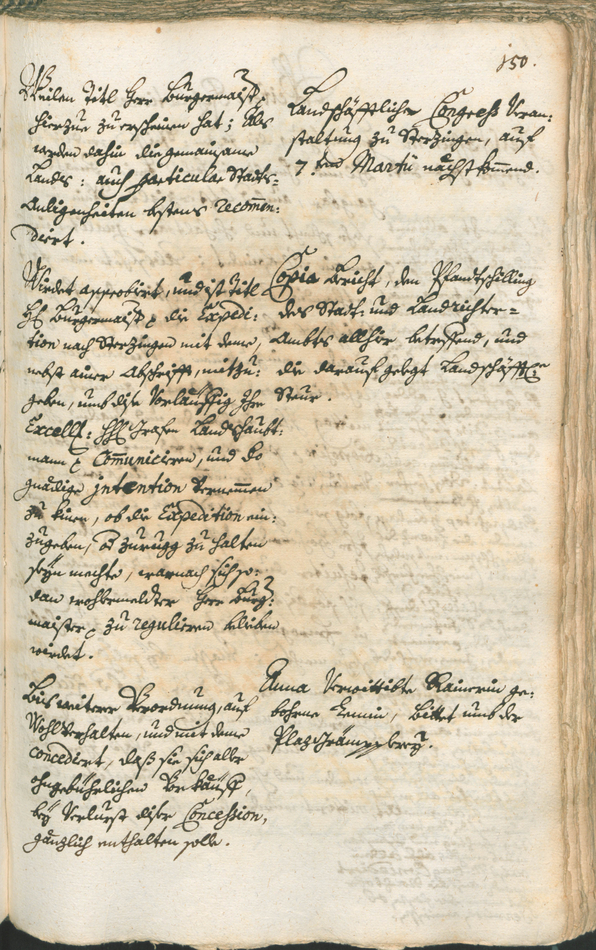 150.
Weilen Titl Herr Burgermaister
hierzue zu erscheinen hat; Als
werden dahin die gemainsame
Lands: auch particular Stadt-
Anligenheiten bestens recomen:
dirt.
Landschäfftlicher Congress Veran:
staltung zu Sterzingen, auf
7.ten Martii nächstkommend.
Wirdet approbirt, und ist Titl
Hl. Burgermaister die Expedi:
tion nach Sterzingen mit deme,
nebst ainer Abschrifft, mitzu:
geben, umb dise Vorläuffig Ihro
Excell: Grafen Landshaubt:
mann Communicieren, und do
gnädige intention Vernemmen
zu kinen, ob die Expedition ein:
zugeben, od zurugg zu halten
seyn mechte, warnach sich so:
dan wohlbemeldter Herr Burg:
maister zu regulieren bleiben
wirdet.
Copia Bericht, den Pfandtschilling
des Stadt: und Landrichter-
Ambtes allhier betreffend, und
die darauf gelegt Landschäffte
Steur.
Bis weitere Verordnung, auf
Wohlverhalten, und mit deme
concediert, daß sie sich aller
ohngebührlichen Vorkauff,
bey Verlurst diser Concession,
gänzlich enthalten solle.
Anna Verwittibte Rainerin ge:
bohrne, Bittet umb die